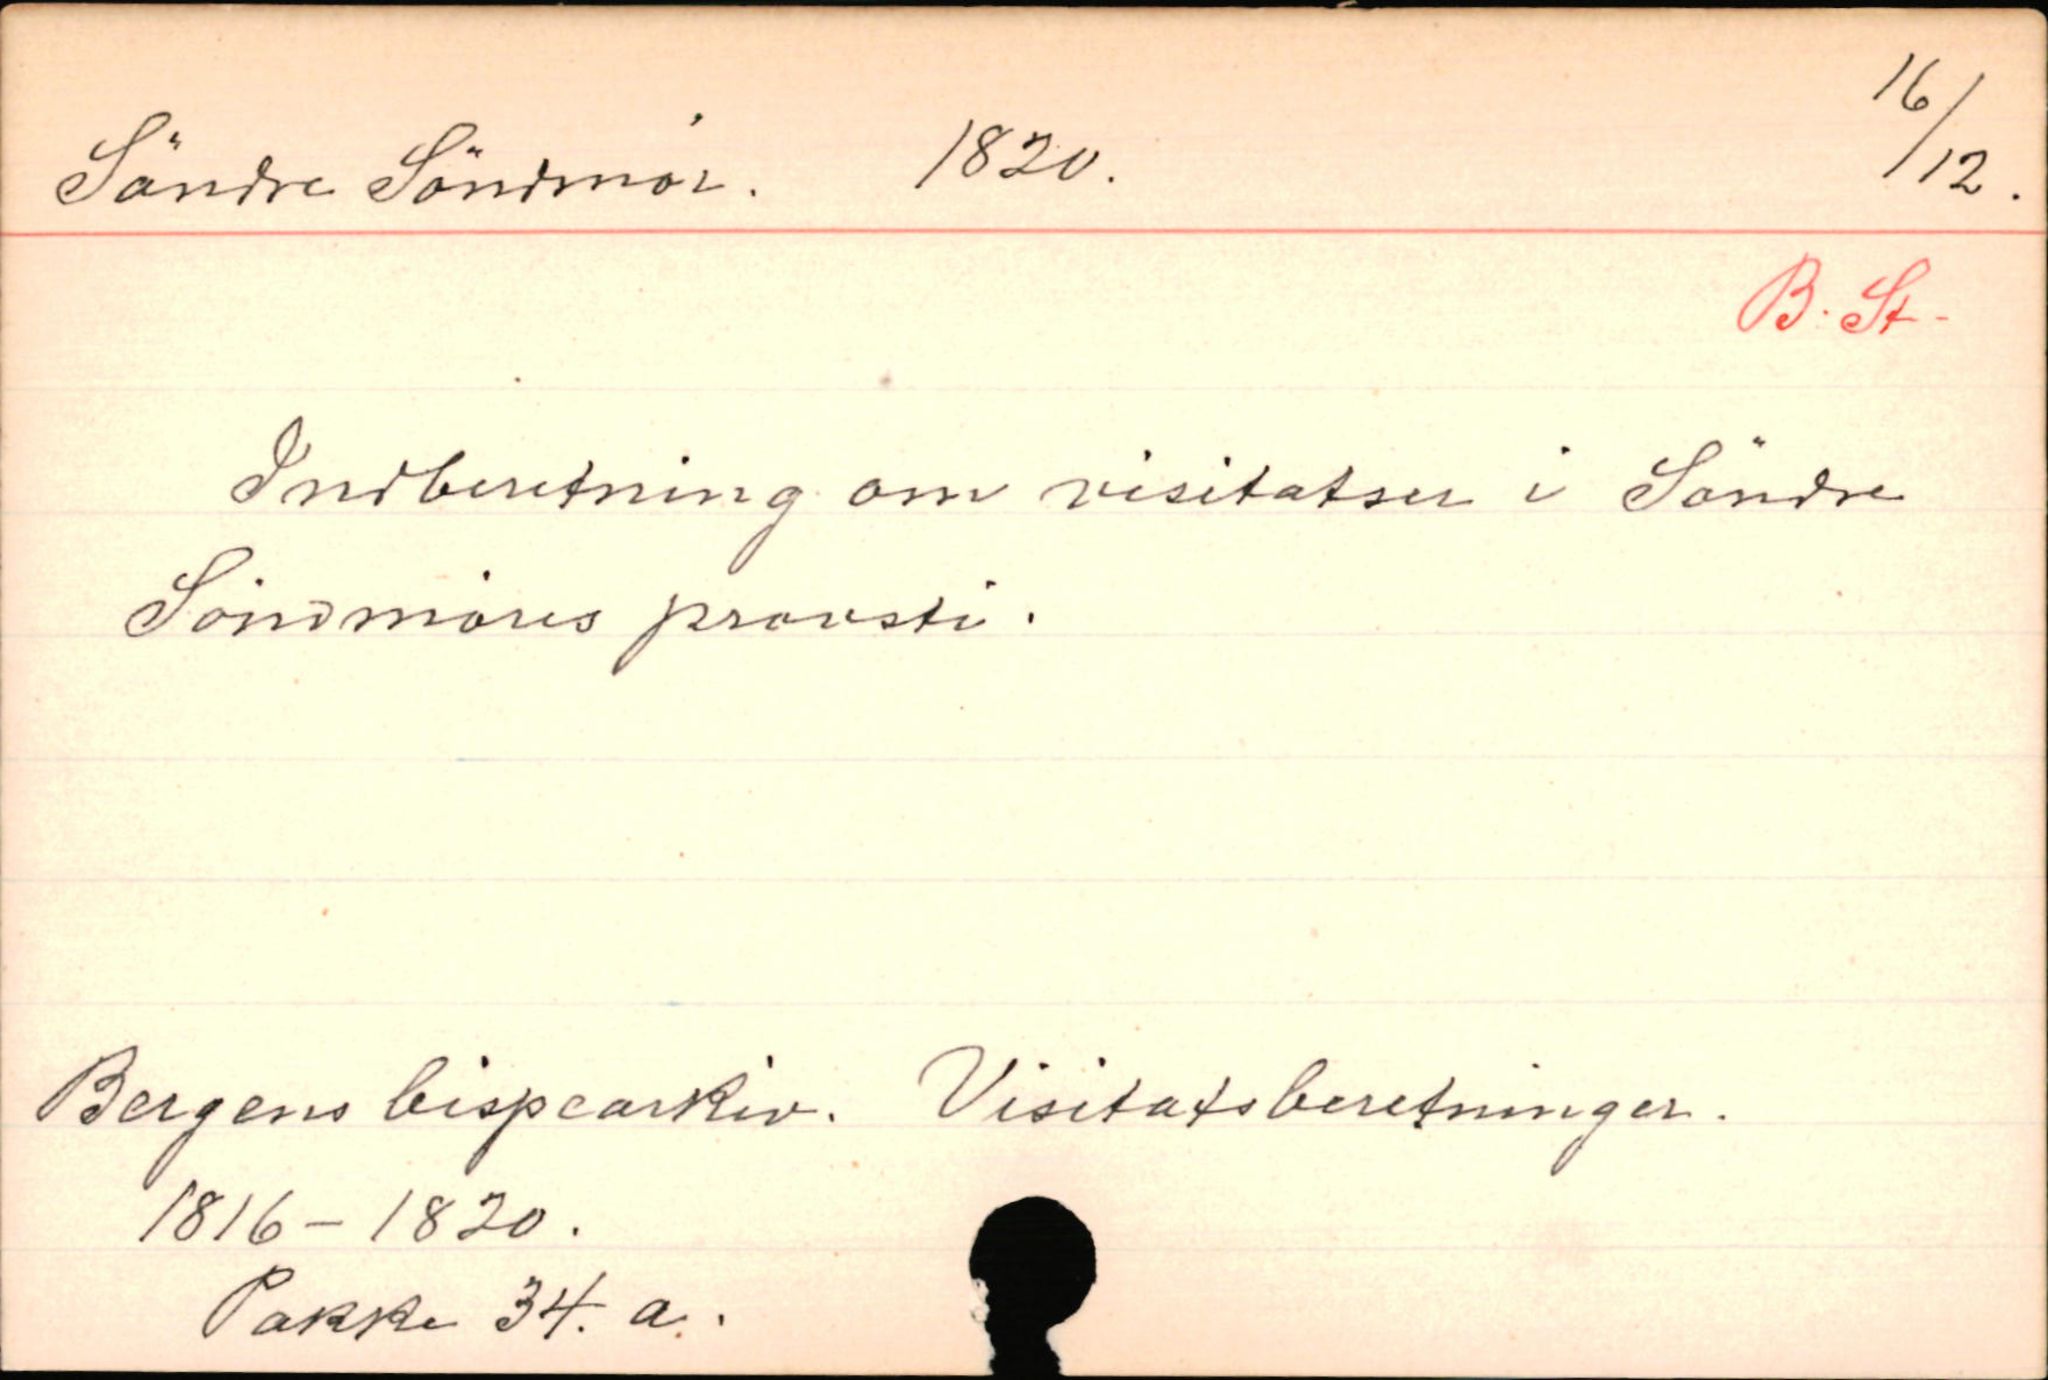 Söndre Söndmör. 1820. 16/12.
B. St.
Indberetning om visitatser i Söndre
Söndmöres provsti.
Bergens bispearkiv. Visitatsberetninger.
1816-1820.
Pakke 34. a.